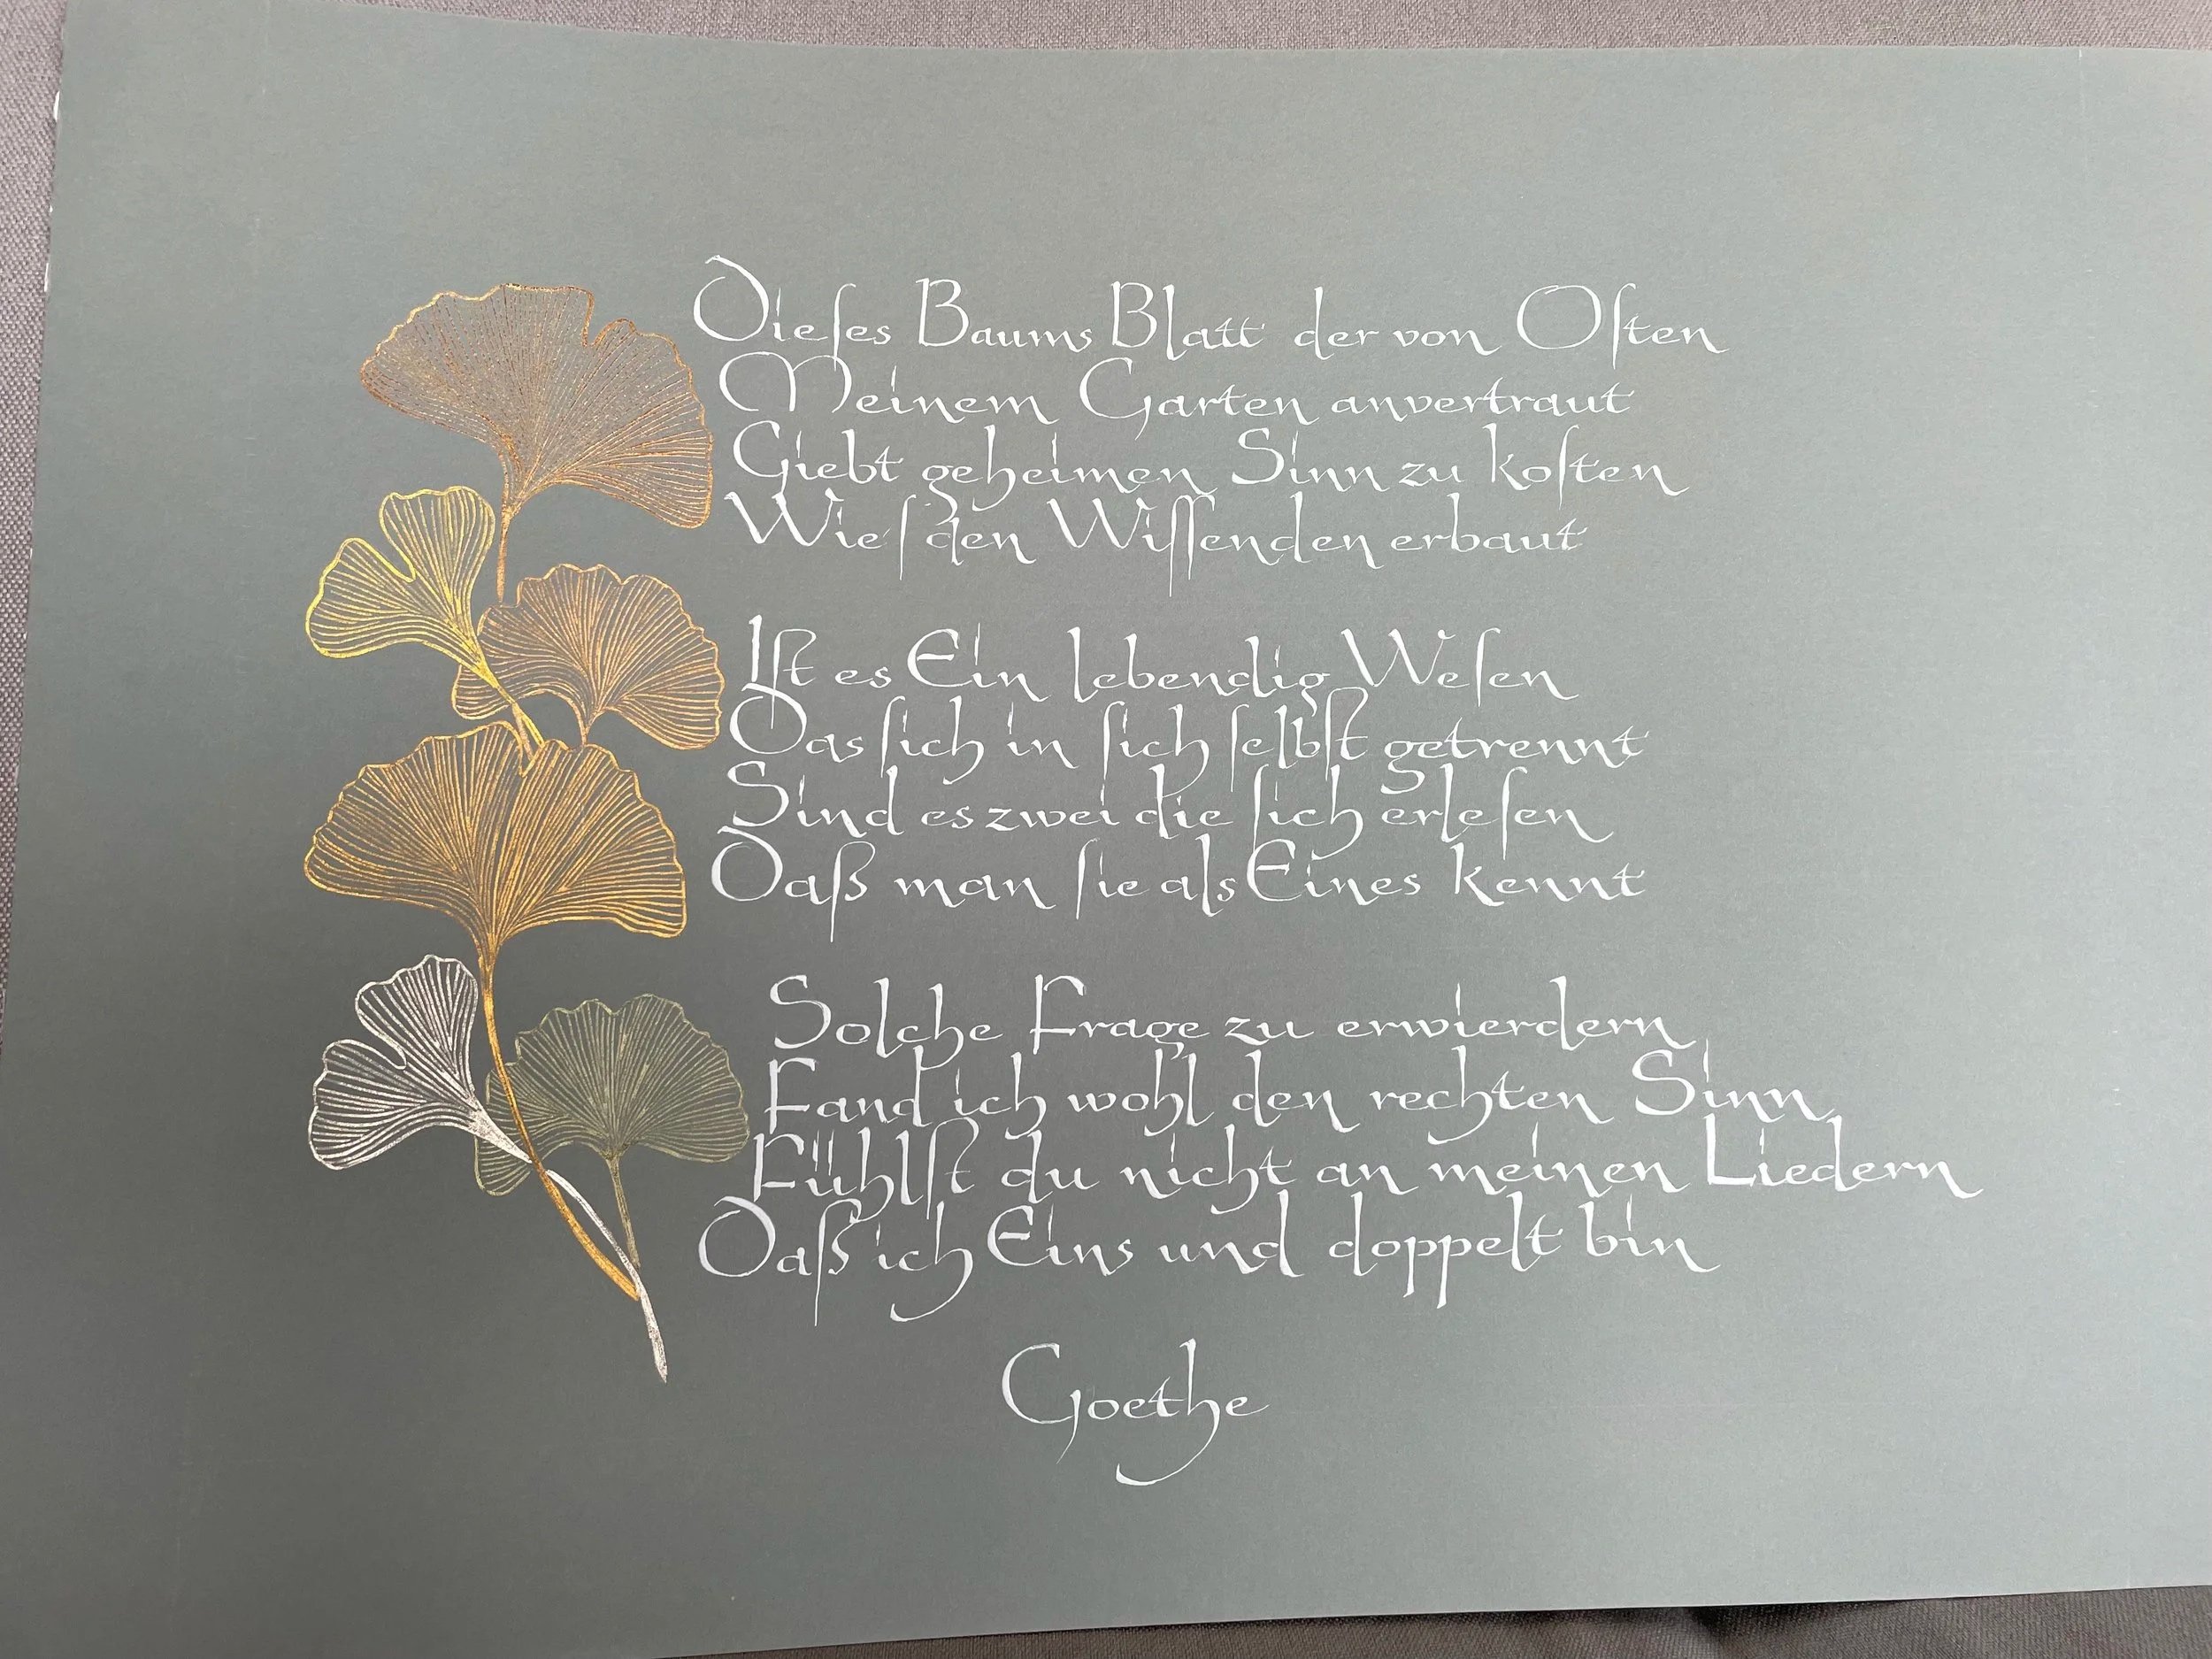 Dieſes Baums Blatt der von Oſten
Meinem Garten anvertraut
Giebt geheimen Sinn zu koſten
Wie'ſ den Wiſſenden erbaut
Iſt es Ein lebendig Weſen
Das ſich in ſich ſelbſt getrennt
Sind es zwei die ſich erleſen
Daß man ſie als Eines kennt
Solche Frage zu erwierdern
Fand ich wohl den rechten Sinn
Fühlſt du nicht an meinen Liedern
Daß ich Eins und doppelt bin
Goethe